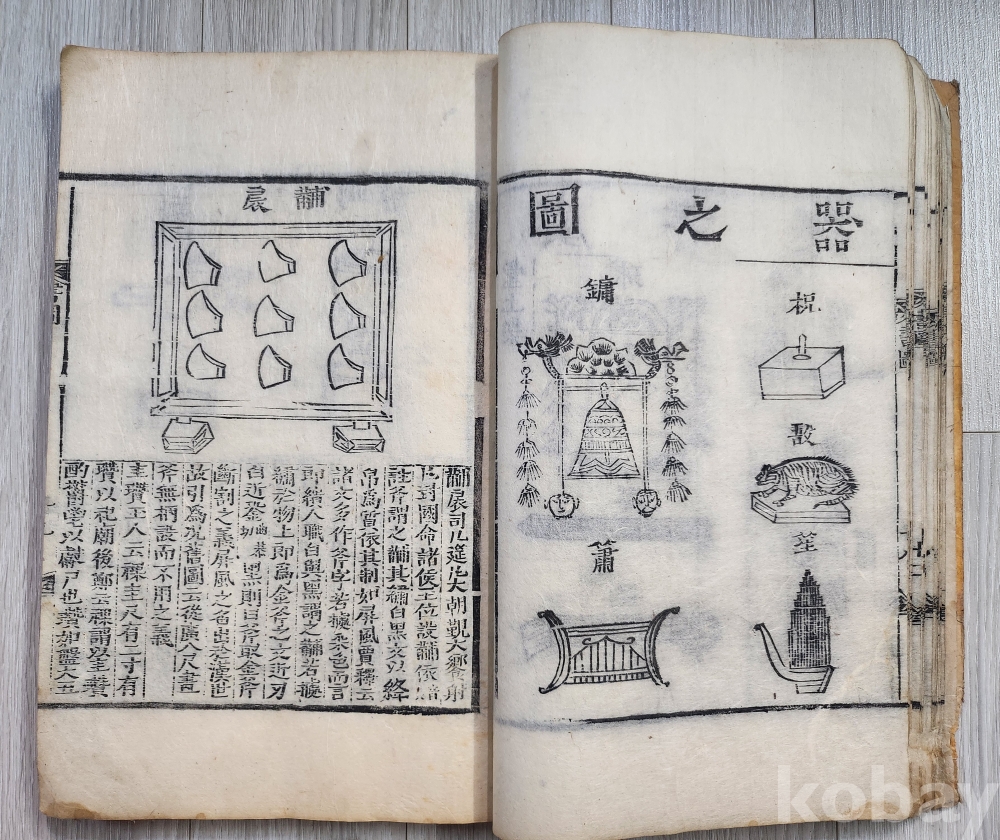 器之圖
柷
敔
笙
鏞
簫
黼扆
黼扆司几筵凡大朝覲大饗射
凡封國命諸侯王位設黼依
註斧謂之黼其繡白黑文以絳
帛爲質依其制如屏風賈釋云
諸文多作斧字若據采色而言
即繢人職白與黑謂之黼若據
繡於物上即爲金斧之文近刃
白近銎曲恭切黑則曰斧取金斧
斷割之義屏風之名出於漢世
故引爲况舊圖云從廣八尺畫
斧無柄設而不用之義
圭瓚玉人云祼圭尺有二寸有
瓚以祀廟後鄭云祼謂以圭瓚
酌鬱鬯以獻尸也瓚如盤大五
kobay